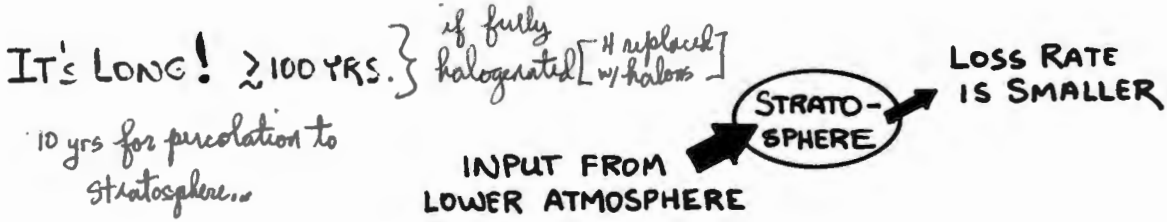 IT'S LONG! ≳100 YRS. } if fully halogenated [H replaced w/ halons]
10 yrs for percolation to
stratosphere...
INPUT FROM
LOWER ATMOSPHERE
STRATO-
SPHERE
LOSS RATE
IS SMALLER